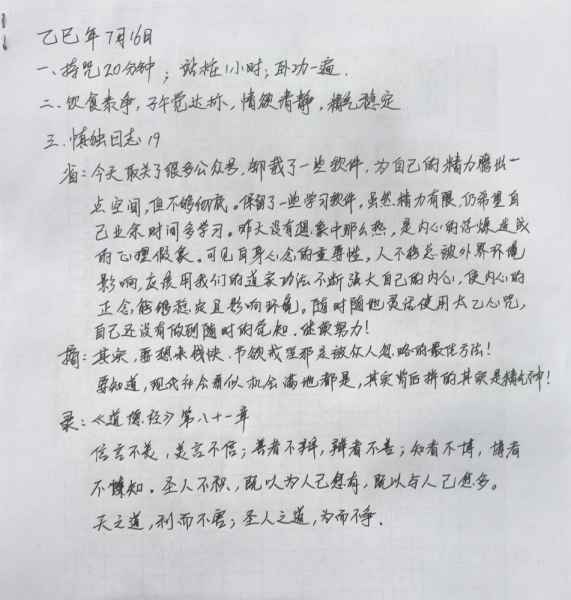 乙巳年7月16日
一、持咒20分钟；站桩1小时；卧功一遍.
二、饮食素净，子午觉达标，情欲清静，精气稳定
三、慎独日志19
省：今天取关了很多公众号，卸载了一些软件，为自己的精力腾出一
点空间，但不够彻底。保留了一些学习软件，虽然精力有限，仍希望自
己业余时间多学习。昨天没有想象中那么热，是内心的浮燥造成
的心理假象。可见自身心念的重要性，人不能总被外界环境
影响，应该用我们的道家功法不断强大自己的内心，使内心的
正念能够稳定且影响环境。随时随地灵活使用太乙心咒，
自己还没有做到随时的觉知。继续努力！
摘：其实，要想来钱快，节欲戒淫那是被众人忽略的最佳方法！
要知道，现代社会看似机会满地都是，其实背后拼的其实是精气神！
录：《道德经》第八十一章
信言不美，美言不信；善者不辩，辩者不善；知者不博，博者
不知。圣人不积，既以为人己愈有，既以与人己愈多。
天之道，利而不害；圣人之道，为而不争.